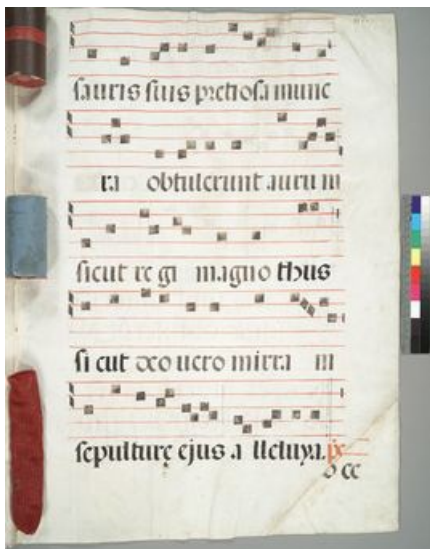 sauris suis pretiosa mune
ra obtulerunt auru m
sicut re gi magno thus
si cut deo uero mirra m
sepulturę ejus a lleluya.